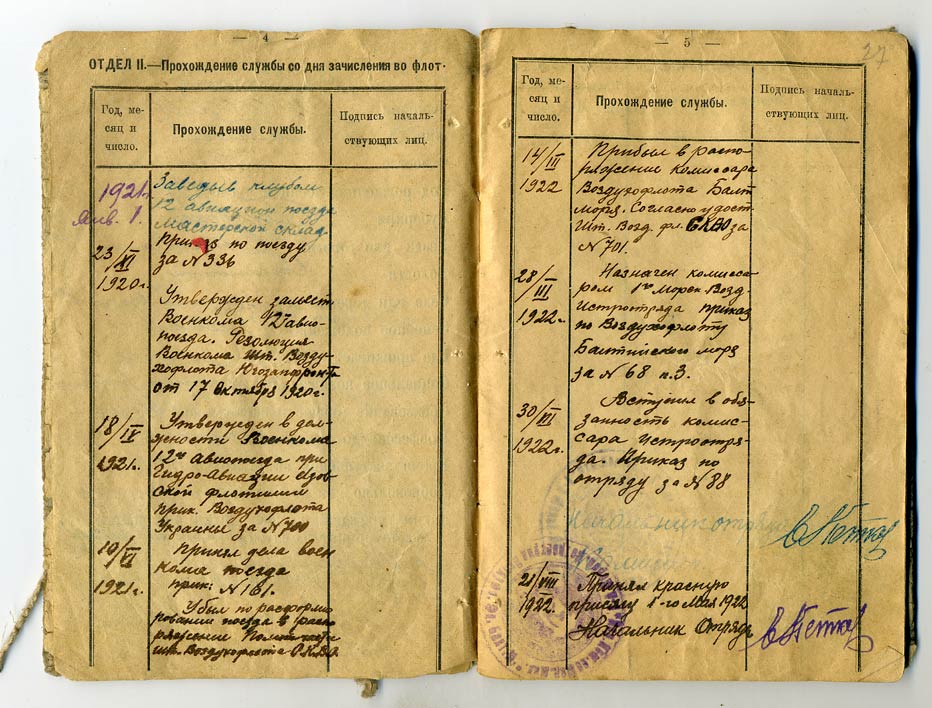 — 4 —
ОТДЕЛ II.—Прохождение службы со дня зачисления во флот.
Год, ме-
сяц и
число.
Прохождение службы.
Подпись началь-
ствующих лиц.
1921г.
Янв. 1.
Заведыв клубом
12 авиацион поезда
Мастерской склад
23/XI
1920г.
Приказ по поезду
за № 336
Утвержден замест.
Военкома 12го авио-
поезда. Резолюция
Военкома Шт. Возду-
хофлота Югозапфронта
от 17 Октября 1920г.
18/IV
1921г.
Утвержден в дол-
жности Военкома
12го Авиопоезда при
Гидро-Авиации Азов
ской флотилии
Прик. Воздухофлота
Украины за № 700
19/VI
1921г.
Принял дела воен
кома поезда
прик: № 161.
Убыл по расформи
рованию поезда в распо
ряжение
шт. Воздухофлота
— 5 —
27
Год, ме-
сяц и
число.
Прохождение службы.
Подпись началь-
ствующих лиц.
14/III
1922
Прибыл в распо-
ряжение Комиссара
Воздухофлота Балт
моря. Согласно удост
Шт. Возд. фл. за
№ 701.
28/III
1922г.
Назначен комисса-
ром 1го Морск Возд.
Истротряда приказ
по Воздухофлоту
Балтийского моря
за № 68 п.3.
30/III
1922г.
Вступил в обя-
занность комис-
сара Истроотря-
да. Приказ по
отряду за № 88
Начальник отряда
21/VIII
1922.
Принял красную
присягу 1-го Мая 1922
Начальник Отряда